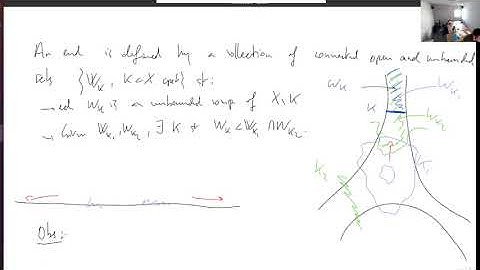 An end is defined by a collection of connected open and unbounded
sets { W_K , K ⊂ X cpct } st:
→ each W_K is an unbounded comp of X \ K
→ Given W_{K_1}, W_{K_2}, ∃ K st W_K ⊂ W_{K_1} ∩ W_{K_2}
Obs:
W_K
K
W_{K_1}
W_{K_2}
K_1
K_2